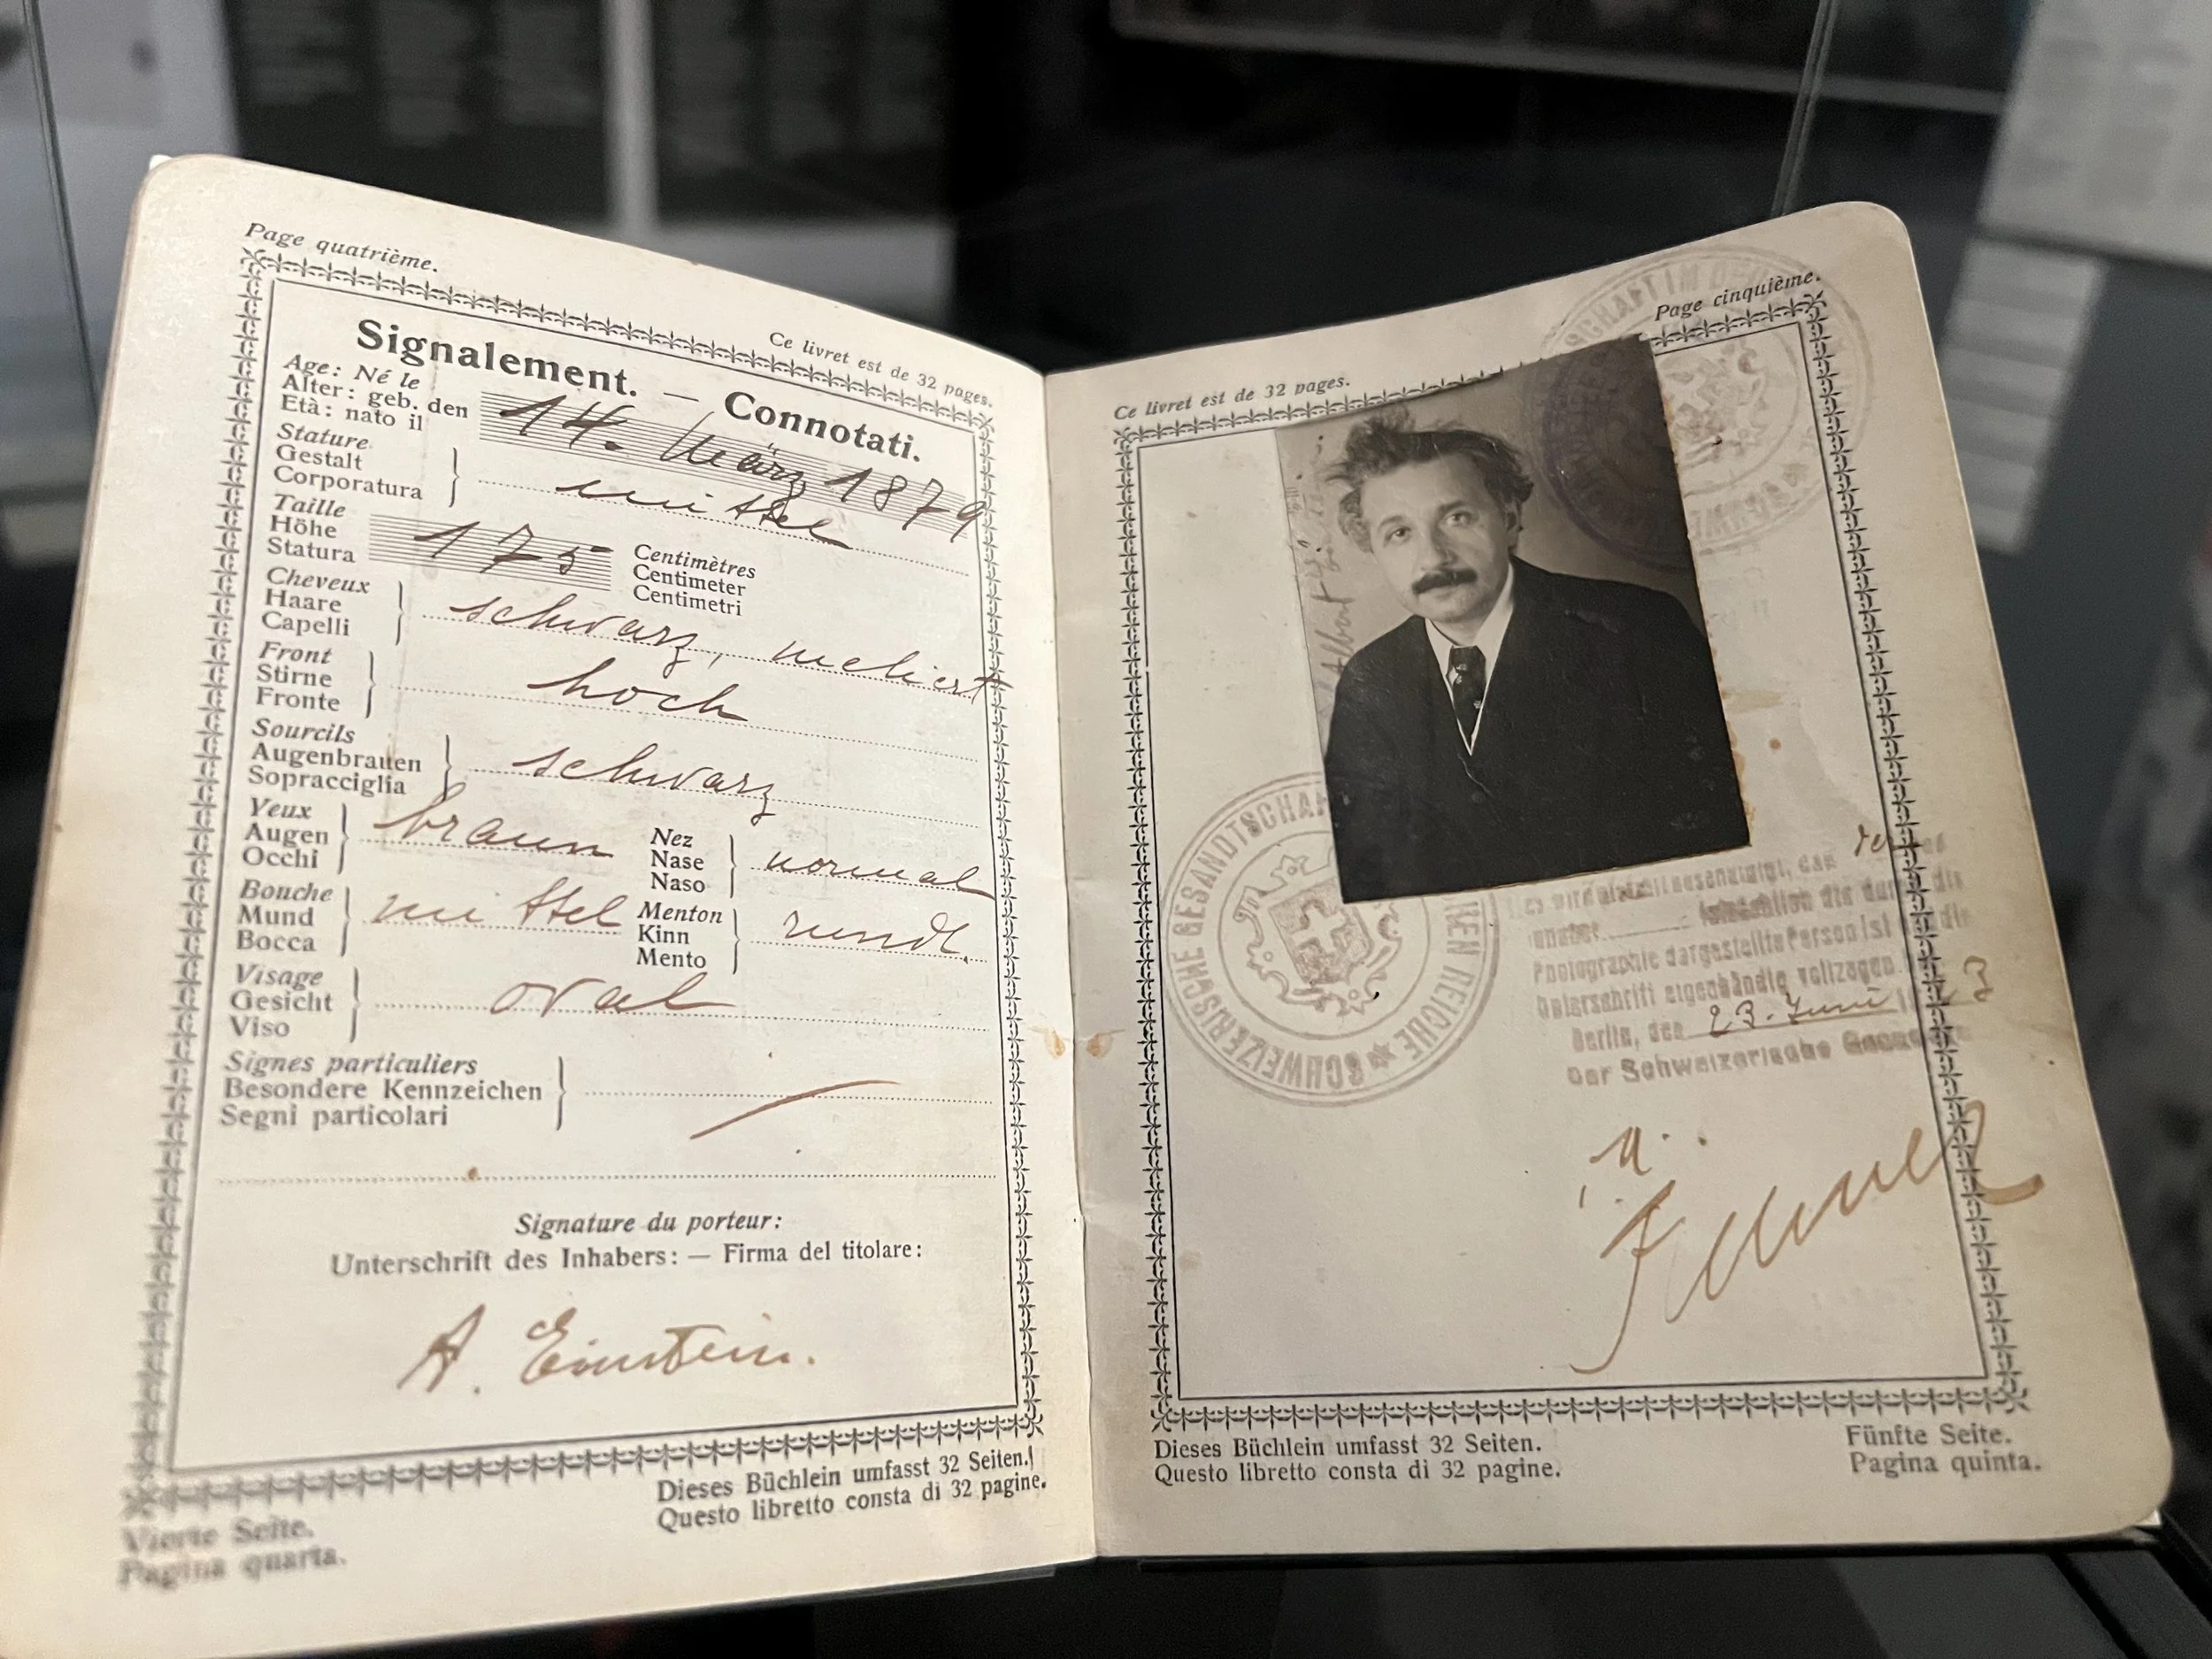 Page quatrième.
Ce livret est de 32 pages.
Signalement. — Connotati.
Age: Né le
Alter: geb. den
Età: nato il
14. März 1879
Stature
Gestalt
Corporatura
mittel
Taille
Höhe
Statura
175
Centimètres
Centimeter
Centimetri
Cheveux
Haare
Capelli
schwarz, meliert
Front
Stirne
Fronte
hoch
Sourcils
Augenbrauen
Sopracciglia
schwarz
Yeux
Augen
Occhi
braun
Nez
Nase
Naso
normal
Bouche
Mund
Bocca
mittel
Menton
Kinn
Mento
rund.
Visage
Gesicht
Viso
oval
Signes particuliers
Besondere Kennzeichen
Segni particolari
Signature du porteur:
Unterschrift des Inhabers: — Firma del titolare:
A. Einstein.
Dieses Büchlein umfasst 32 Seiten.
Questo libretto consta di 32 pagine.
Vierte Seite.
Pagina quarta.
Page cinquième.
Ce livret est de 32 pages.
Albert
SCHWEIZERISCHE GESANDTSCHAFT
REICHE
Es wird hiemit bescheinigt, dass
Inhaber
Photographie dargestellte Person ist
Unterschrift eigenhändig vollzogen
Berlin, den 23. Juni
Der Schweizerische
Dieses Büchlein umfasst 32 Seiten.
Questo libretto consta di 32 pagine.
Fünfte Seite.
Pagina quinta.